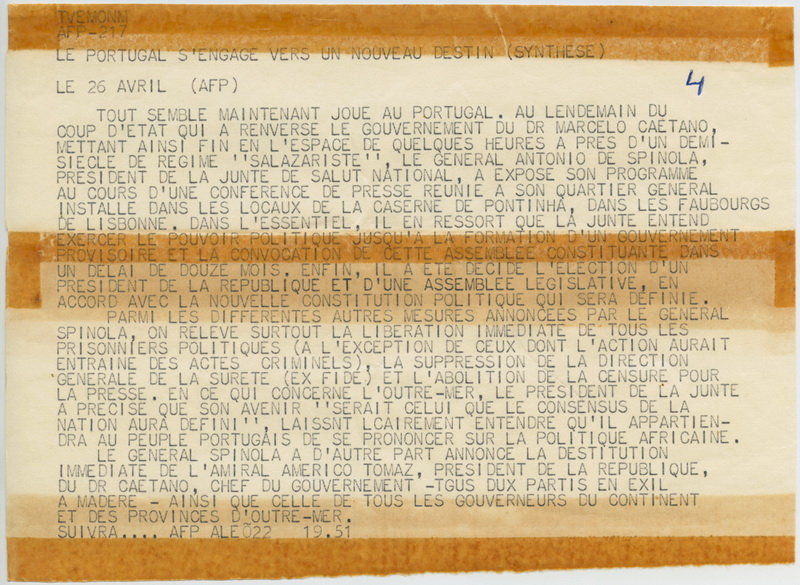 TVEMONM
AFP-217
LE PORTUGAL S'ENGAGE VERS UN NOUVEAU DESTIN (SYNTHESE)
LE 26 AVRIL (AFP)
4
TOUT SEMBLE MAINTENANT JOUE AU PORTUGAL. AU LENDEMAIN DU
COUP D'ETAT QUI A RENVERSE LE GOUVERNEMENT DU DR MARCELO CAETANO,
METTANT AINSI FIN EN L'ESPACE DE QUELQUES HEURES A PRES D'UN DEMI-
SIECLE DE REGIME ''SALAZARISTE'', LE GENERAL ANTONIO DE SPINOLA,
PRESIDENT DE LA JUNTE DE SALUT NATIONAL, A EXPOSE SON PROGRAMME
AU COURS D'UNE CONFERENCE DE PRESSE REUNIE A SON QUARTIER GENERAL
INSTALLE DANS LES LOCAUX DE LA CASERNE DE PONTINHA, DANS LES FAUBOURGS
DE LISBONNE. DANS L'ESSENTIEL, IL EN RESSORT QUE LA JUNTE ENTEND
EXERCER LE POUVOIR POLITIQUE JUSQU'A LA FORMATION D'UN GOUVERNEMENT
PROVISOIRE ET LA CONVOCATION DE CETTE ASSEMBLEE CONSTITUANTE DANS
UN DELAI DE DOUZE MOIS. ENFIN, IL A ETE DECIDE L'ELECTION D'UN
PRESIDENT DE LA REPUBLIQUE ET D'UNE ASSEMBLEE LEGISLATIVE, EN
ACCORD AVEC LA NOUVELLE CONSTITUTION POLITIQUE QUI SERA DEFINIE.
PARMI LES DIFFERENTES AUTRES MESURES ANNONCEES PAR LE GENERAL
SPINOLA, ON RELEVE SURTOUT LA LIBERATION IMMEDIATE DE TOUS LES
PRISONNIERS POLITIQUES (A L'EXCEPTION DE CEUX DONT L'ACTION AURAIT
ENTRAINE DES ACTES CRIMINELS), LA SUPPRESSION DE LA DIRECTION
GENERALE DE LA SURETE (EX FIDE) ET L'ABOLITION DE LA CENSURE POUR
LA PRESSE. EN CE QUI CONCERNE L'OUTRE-MER, LE PRESIDENT DE LA JUNTE
A PRECISE QUE SON AVENIR ''SERAIT CELUI QUE LE CONSENSUS DE LA
NATION AURA DEFINI'', LAISSNT LCAIREMENT ENTENDRE QU'IL APPARTIEN-
DRA AU PEUPLE PORTUGAIS DE SE PRONONCER SUR LA POLITIQUE AFRICAINE.
LE GENERAL SPINOLA A D'AUTRE PART ANNONCE LA DESTITUTION
IMMEDIATE DE L'AMIRAL AMERICO TOMAZ, PRESIDENT DE LA REPUBLIQUE,
DU DR CAETANO, CHEF DU GOUVERNEMENT -TGUS DUX PARTIS EN EXIL
A MADERE - AINSI QUE CELLE DE TOUS LES GOUVERNEURS DU CONTINENT
ET DES PROVINCES D'OUTRE-MER.
SUIVRA.... AFP ALEÕ22 19.51